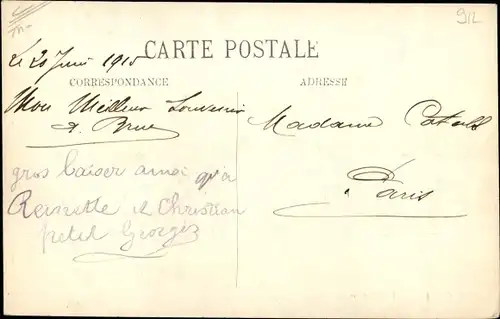 912
CARTE POSTALE
Le 20 Juin 1910
CORRESPONDANCE
ADRESSE
Mon Meilleur Souvenir
Madame
gros baiser ainsi qu'a
à Paris
et Christian
petit Georges